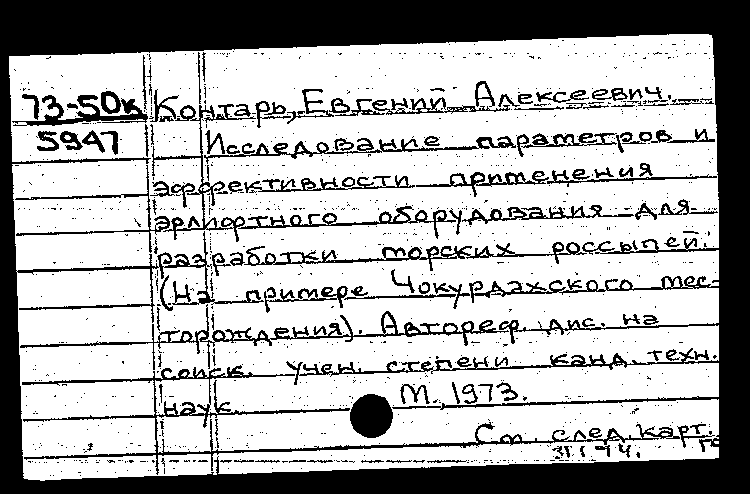 73-50к Контарь, Евгений Алексеевич.
5947 Исследование параметров и
эффективности применения
эрлифтного оборудования для
разработки морских россыпей.
(На примере Чокурдахского мес-
торождения). Автореф. дис. на
соиск. учен. степени канд. техн.
наук. М., 1973.
См. след. карт.